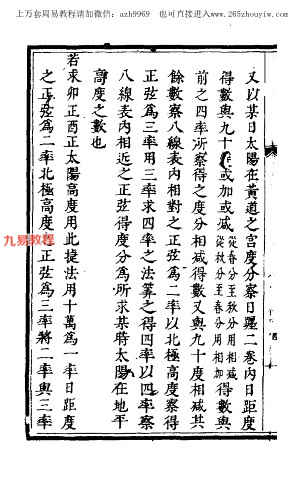 上万套周易教程请加微信：azh9969 也可直接进入www.265zhouyiw.com
又以某日太陽在黃道之宮度分察日躔二卷內日距度
得數與九十度或加或減從春分至秋分用相減從秋分至春分用相加得數與
前之四率所察得之度分相減得數又與九十度相減其
餘數察八線表內相對之正弦爲二率以北極高度察得
正弦爲三率用三率求四率之法算之得四率以四率察
八線表內相近之正弦得度分爲所求某時太陽在地平
高度之數也
若求卯正酉正太陽高度用此捷法用十萬爲一率日距度
之正弦爲二率北極高度之正弦爲三率將二率與三率
九易教程